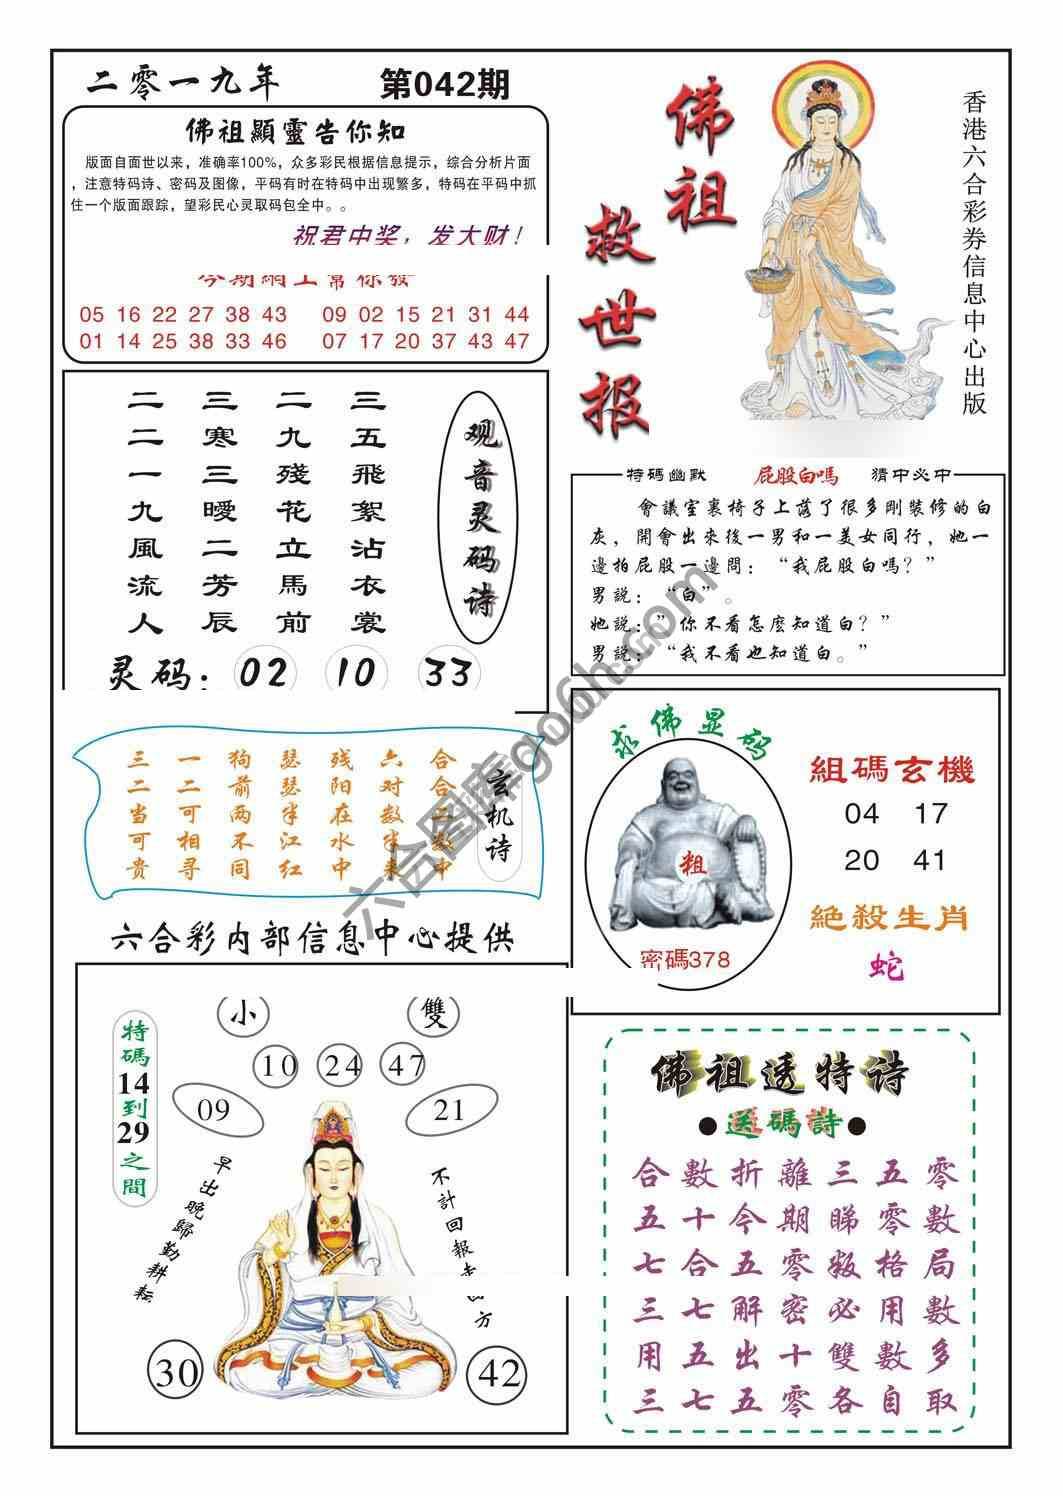 二零一九年
第042期
佛祖顯靈告你知
版面自面世以来，准确率100%，众多彩民根据信息提示，综合分析片面
，注意特码诗、密码及图像，平码有时在特码中出现繁多，特码在平码中抓
住一个版面跟踪，望彩民心灵取码包全中。。
祝君中奖，发大财！
05 16 22 27 38 43 09 02 15 21 31 44
01 14 25 38 33 46 07 17 20 37 43 47
佛祖
救世报
香港六合彩券信息中心出版
观音灵码诗
三五飛絮沾衣裳
二九殘花立馬前
三寒三曖二芳辰
二二一九風流人
灵码：02 10 33
特碼幽默 屁股白嗎 猜中必中
會議室裏椅子上落了很多剛裝修的白
灰，開會出來後一男和一美女同行，她一
邊拍屁股一邊問：“我屁股白嗎？”
男説：“白”。
她説：”你不看怎麽知道白？”
男説：“我不看也知道白。”
玄机诗
合合二数中
六对数半来
残阳在水中
瑟瑟半江红
狗前两不同
一二可相寻
三二当可贵
求佛显码
粗
密碼378
組碼玄機
04 17
20 41
絶殺生肖
蛇
六合彩内部信息中心提供
小 雙
10 24 47
09 21
特碼14到29之間
早出晚歸勤耕耘
不計回報
方
30 42
佛祖透特诗
●送碼詩●
合數折離三五零
五十今期睇零數
七合五零叛格局
三七解密必用數
用五出十雙數多
三七五零各自取
六合图库go6h.com